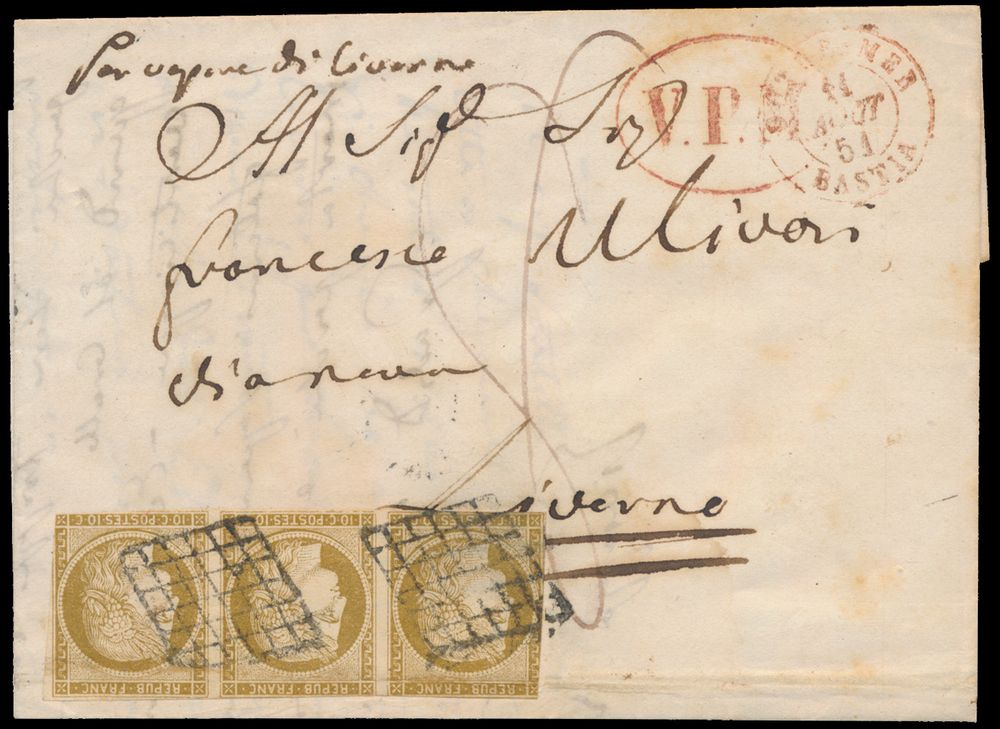 Per vapore di Livorno
Al Sigr Sigr
V.P.M
OUTRE-MER
21
AOUT
51
BASTIA
francesco Ulivari
Livorno
10 C. POSTES 10 C. 10 C. POSTES 10 C. 10 C. POSTES 10 C.
REPUB FRANC REPUB FRANC REPUB FRANC